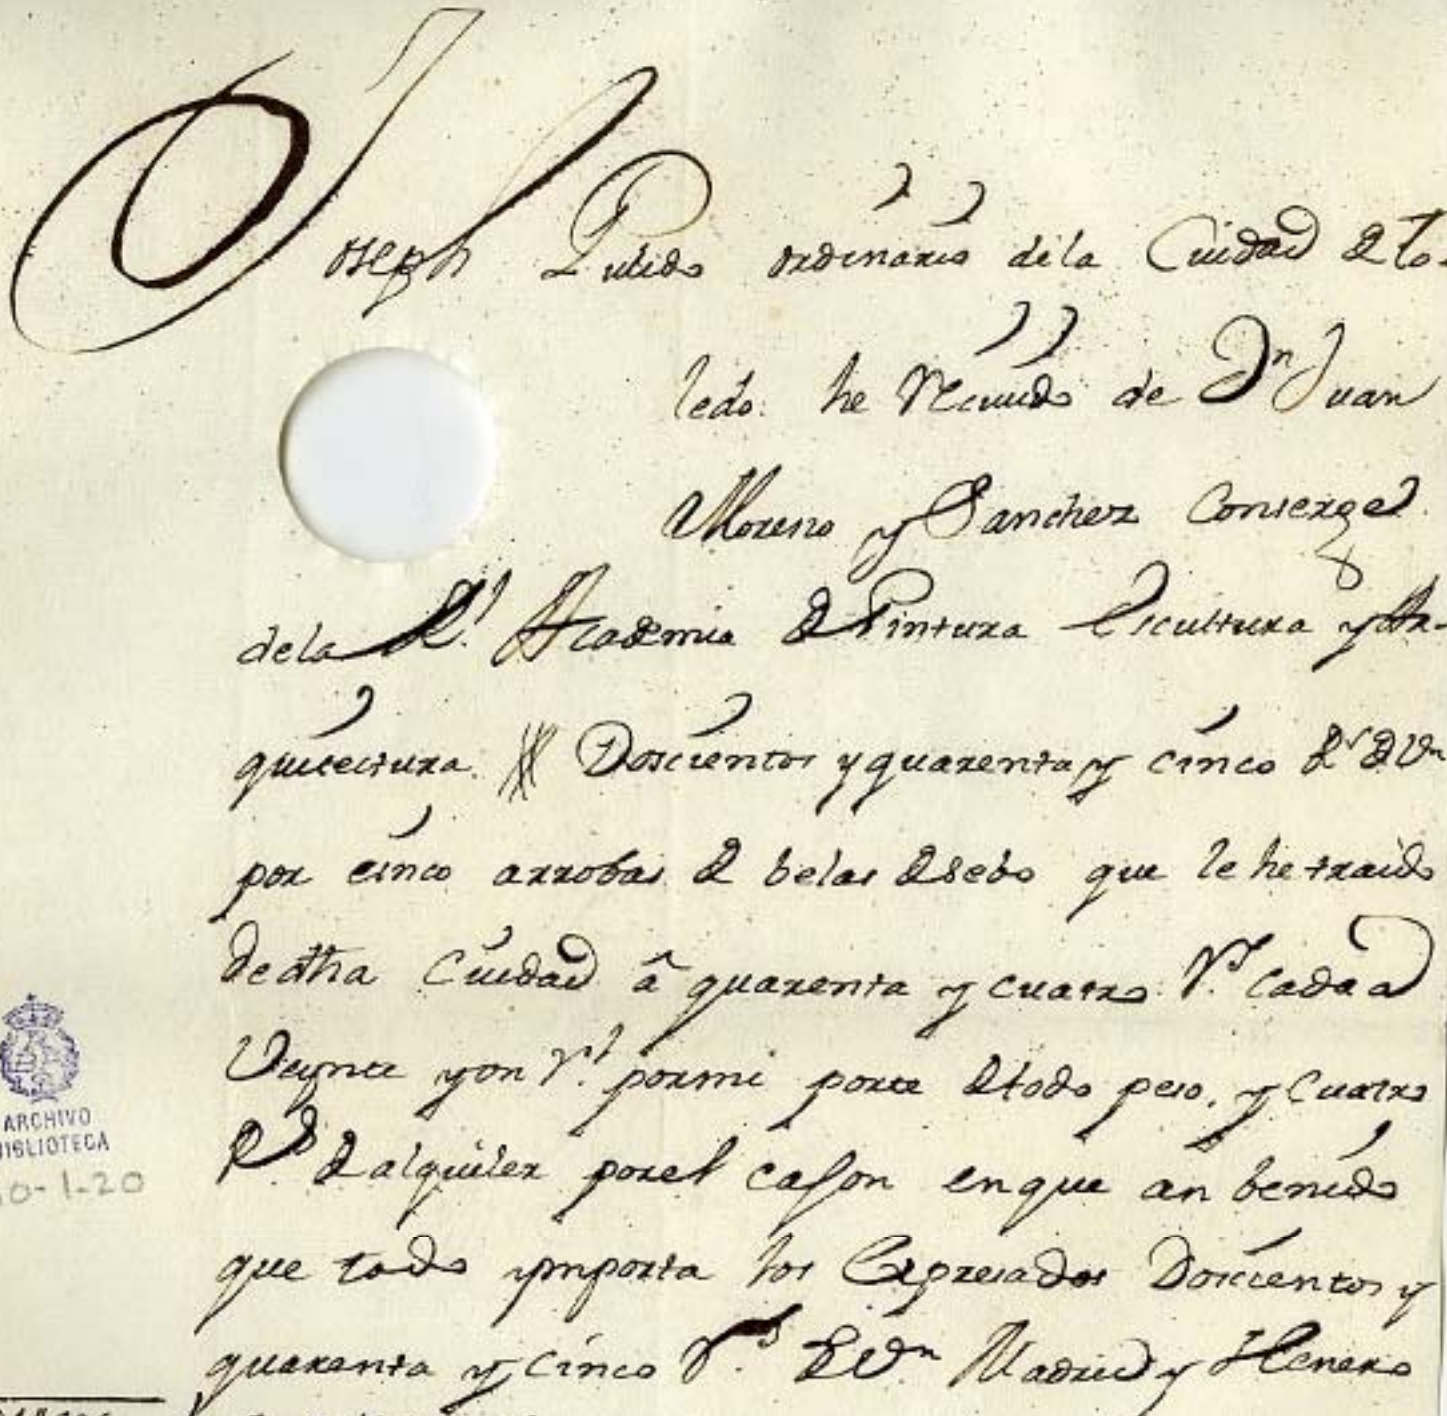 Joseph Pulido ordinario dela Ciudad de To-
ledo. he Recivido de Dn Juan
Moreno y Sanchez Conserge
dela Rl. Academia de Pintura Escultura y Ar-
quitectura. # Doscientos y quarenta y cinco Rs de Vn
por cinco arrobas de belas de sebo que le he traido
de dha Ciudad â quarenta y cuatro rs. cada a
Veynte y on rs. por mi porte de todo peso, y Cuatro
Rs. de alquiler por el cajon en que an benido
que todo ymporta los Expresados Doscientos y
quarenta y cinco rs. de Vn Madrid y Henero
ARCHIVO
BIBLIOTECA
0-1-20